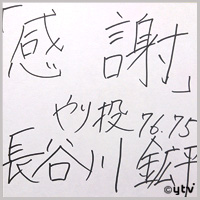 「感謝」
やり投 76.75
長谷川 鉱平
©ytv